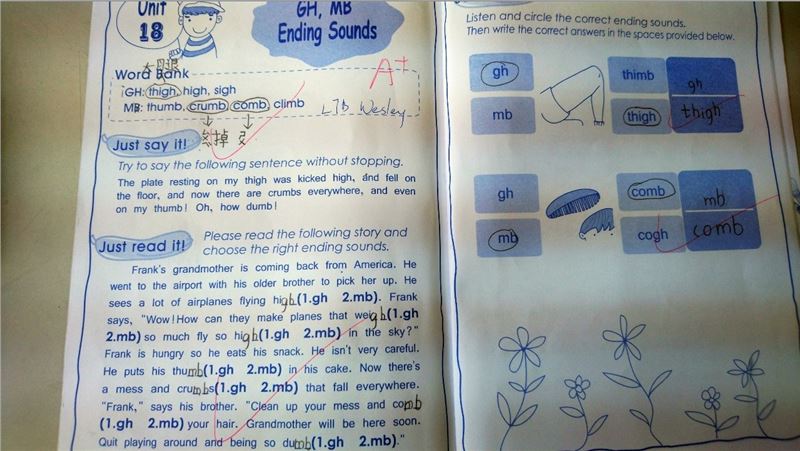 Unit
18
GH, MB
Ending Sounds
大腿
Word Bank
A+
GH: thigh, high, sigh
MB: thumb, crumb, comb, climb
L7B Wesley
掉
Just say it!
Try to say the following sentence without stopping.
The plate resting on my thigh was kicked high, and fell on
the floor, and now there are crumbs everywhere, and even
on my thumb! Oh, how dumb!
Just read it!
Please read the following story and
choose the right ending sounds.
Frank's grandmother is coming back from America. He
went to the airport with his older brother to pick her up. He
sees a lot of airplanes flying high(1.gh 2.mb). Frank
says, "Wow! How can they make planes that weigh(1.gh
2.mb) so much fly so high(1.gh 2.mb) in the sky?"
Frank is hungry so he eats his snack. He isn't very careful.
He puts his thumb(1.gh 2.mb) in his cake. Now there's
a mess and crumbs(1.gh 2.mb) that fall everywhere.
"Frank," says his brother. "Clean up your mess and comb
(1.gh 2.mb) your hair. Grandmother will be here soon.
Quit playing around and being so dumb(1.gh 2.mb)."
Listen and circle the correct ending sounds.
Then write the correct answers in the spaces provided below.
gh
thimb
gh
mb
thigh
thigh
gh
comb
mb
mb
cogh
comb